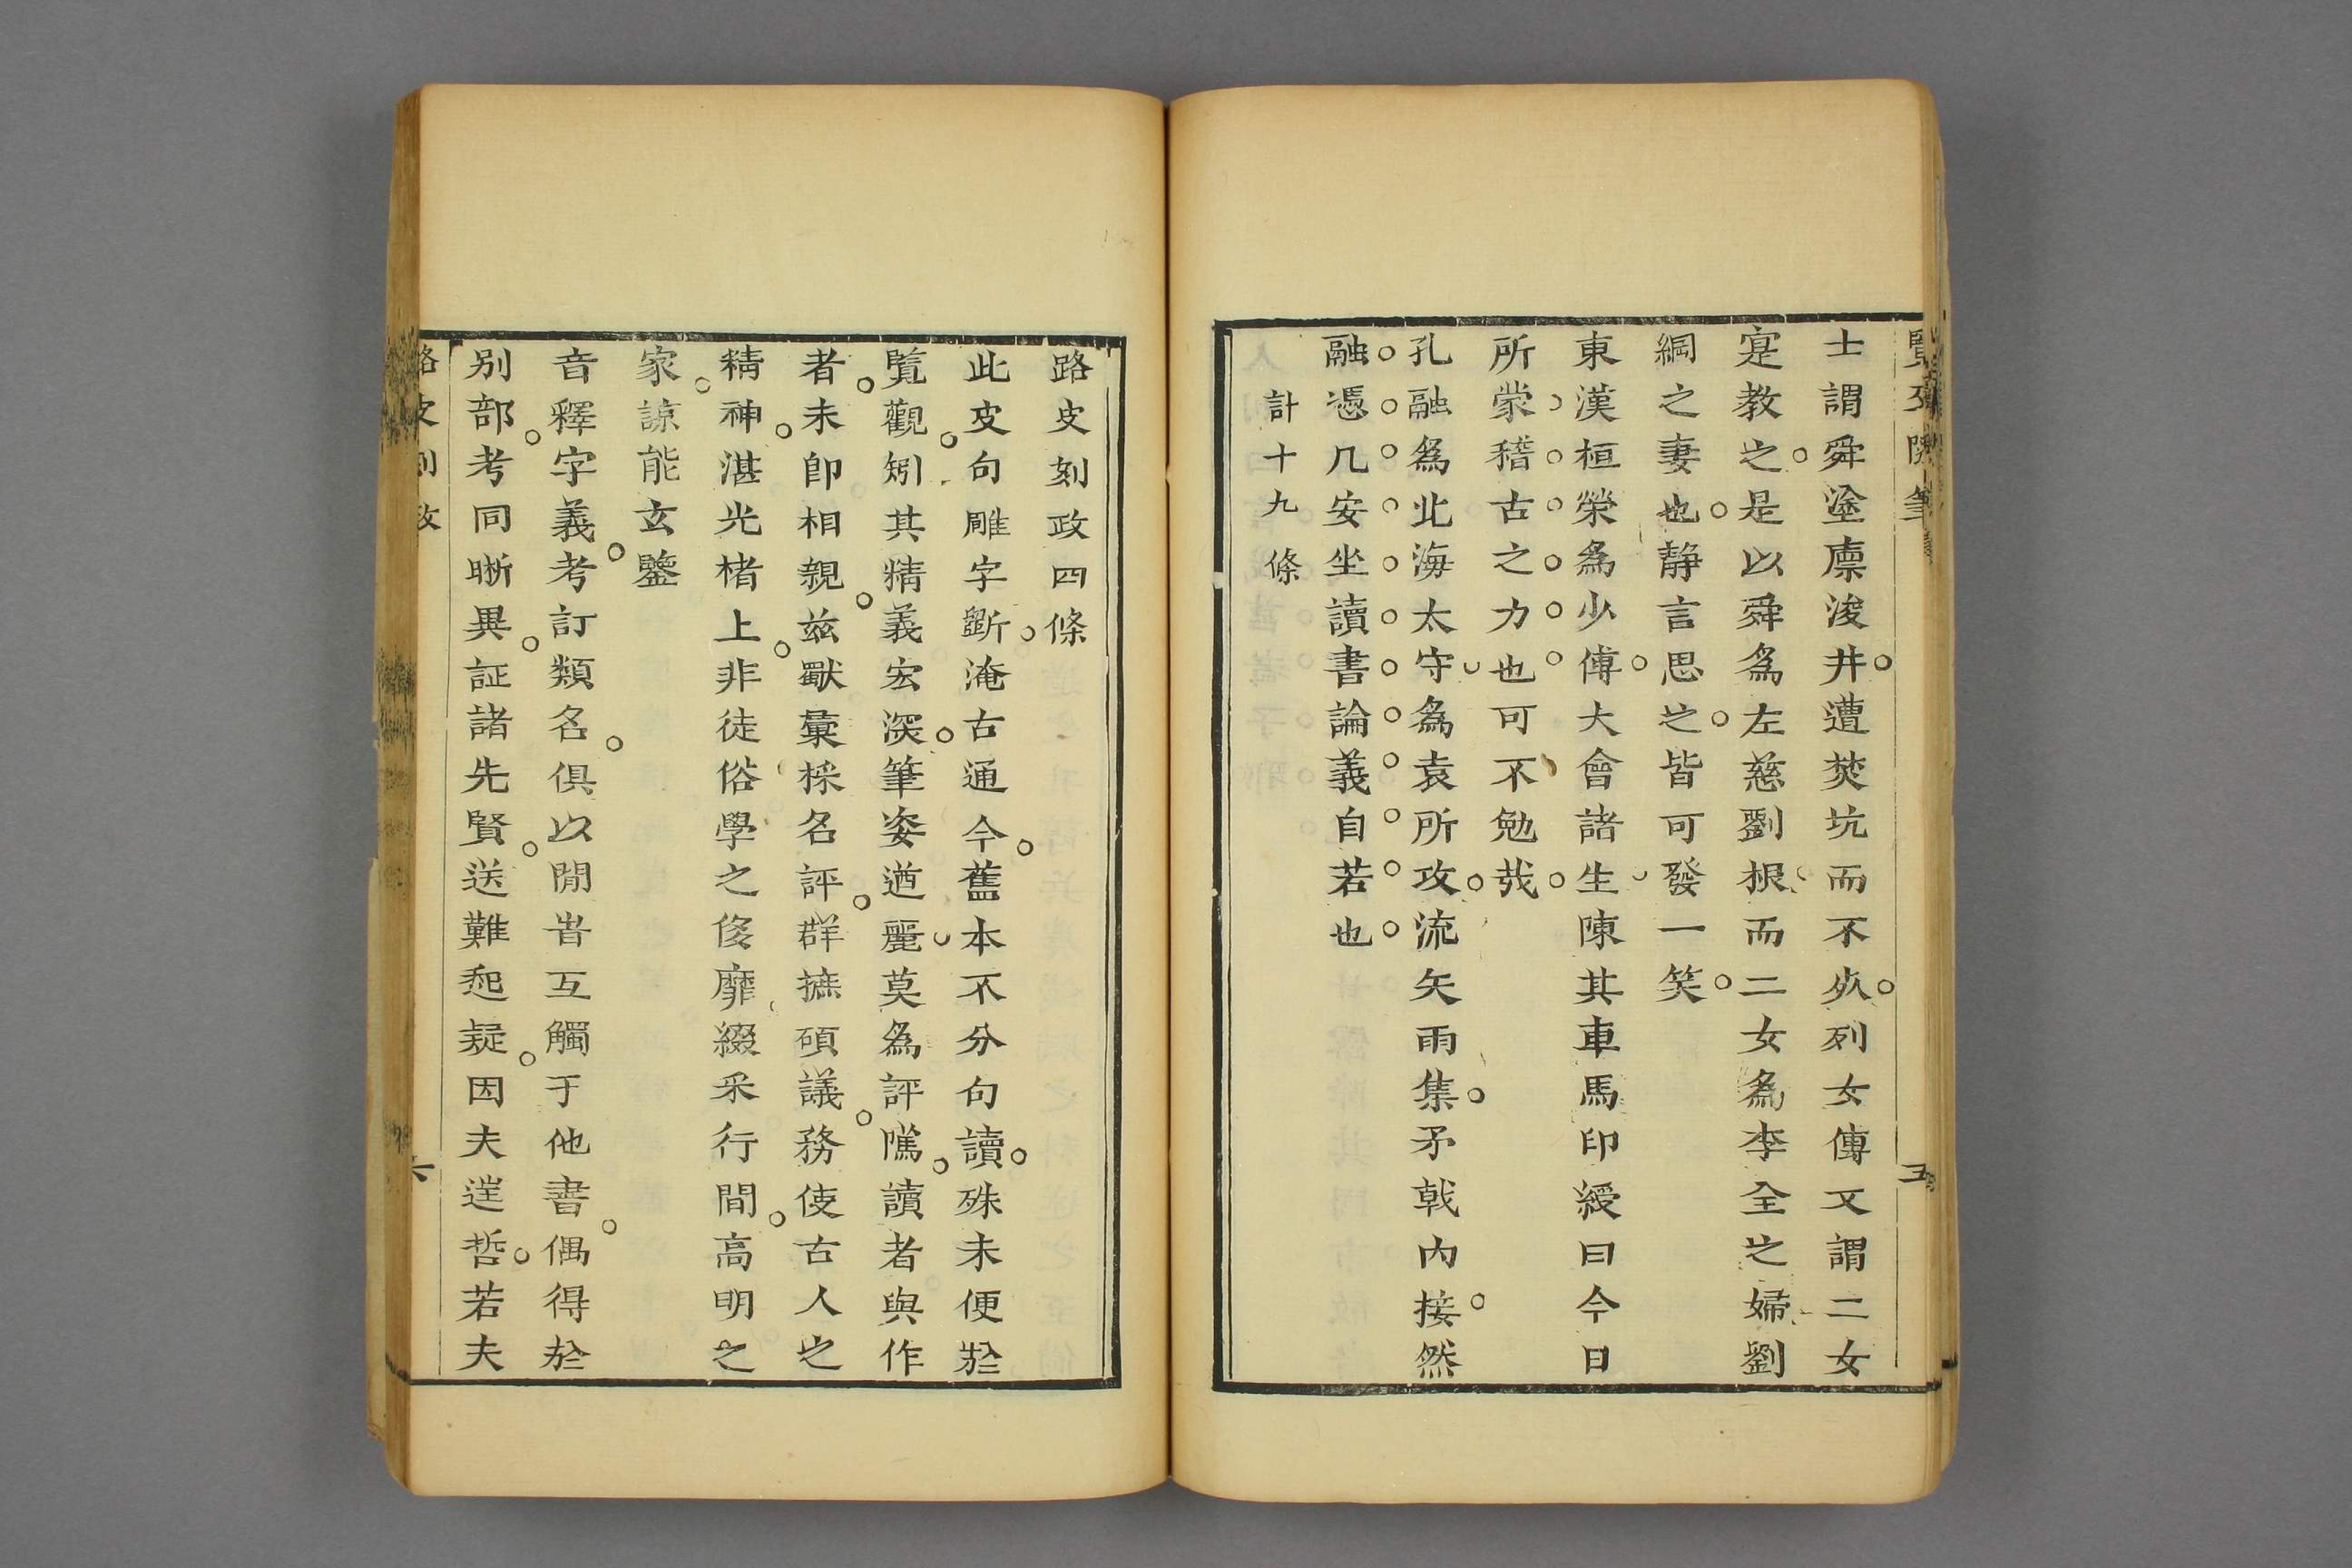 士謂舜塗廩浚井遭焚坑而不死列女傳又謂二女
寔教之是以舜爲左慈劉根而二女爲李全之婦劉
綱之妻也靜言思之皆可發一笑
東漢桓榮爲少傅大會諸生陳其車馬印綬曰今日
所蒙稽古之力也可不勉哉
孔融爲北海太守爲袁所攻流矢雨集矛戟內接然
融憑几安坐讀書論義自若也
計十九條
五
路史刻政四條
此史句雕字斵淹古通今舊本不分句讀殊未便於
覽觀矧其精義宏深筆姿遒麗莫爲評隲讀者與作
者未卽相親玆獸彙採名評群摭碩議務使古人之
精神湛光楮上非徒俗學之侈靡綴采行間高明之
家諒能玄鑒
音釋字義考訂類名俱以閒嘗互觸于他書偶得於
別部考同晰異証諸先賢送難起疑因夫逞哲若夫
六